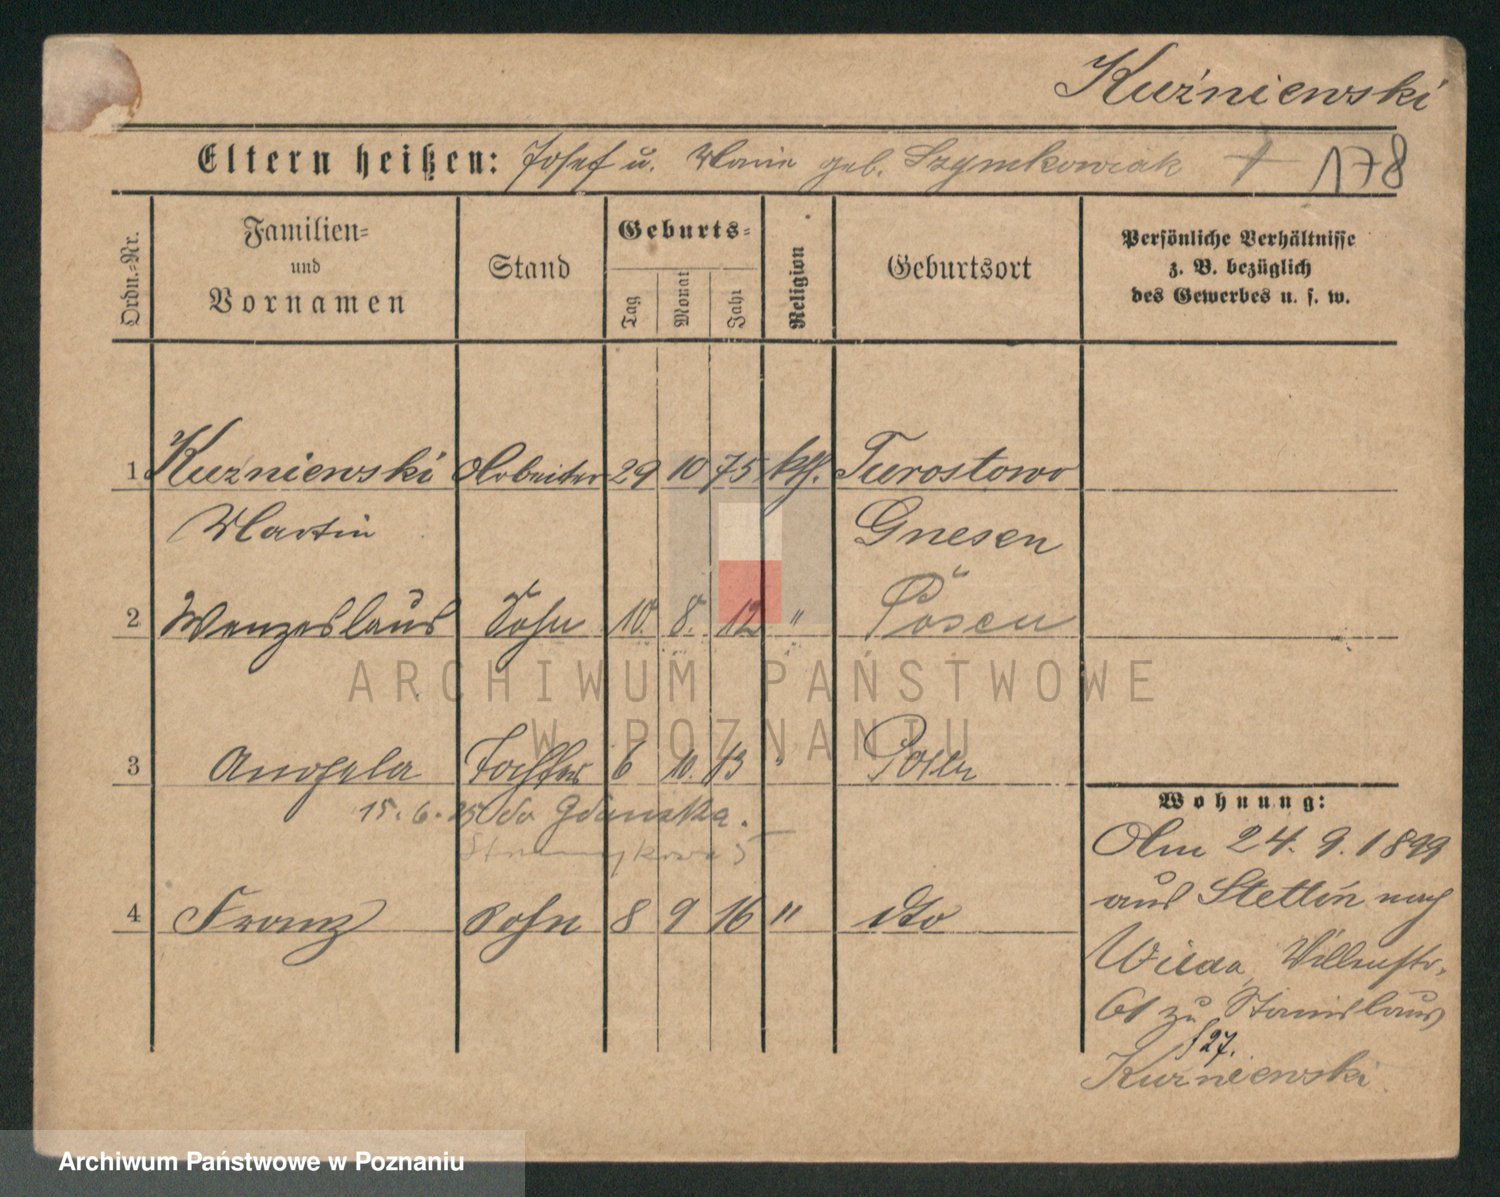 Kuźniewski
Eltern heißen: Josef u. Marie geb. Szymkowiak † 178
Ordn.-Nr.
Familien- und Vornamen
Stand
Geburts-
Tag Monat Jahr
Religion
Geburtsort
Persönliche Verhältnisse
z. B. bezüglich
des Gewerbes u. s. w.
1 Kuźniewski Arbeiter 29 10 75 kth. Turostowo
Martin Gnesen
2 Wenzeslaus Sohn 10. 8. 12 " Posen
3 Angela Tochter 6 10. 13 " Posen
15. 6. 25 do Gdańska.
4 Franz Sohn 8 9 16 " dto
Wohnung:
Am 24. 9. 1899
aus Stettin nach
Wilda, Villenstr.
61 zu Stanislaus
f 27.
Kuźniewski
ARCHIWUM PAŃSTWOWE
W POZNANIU
Archiwum Państwowe w Poznaniu